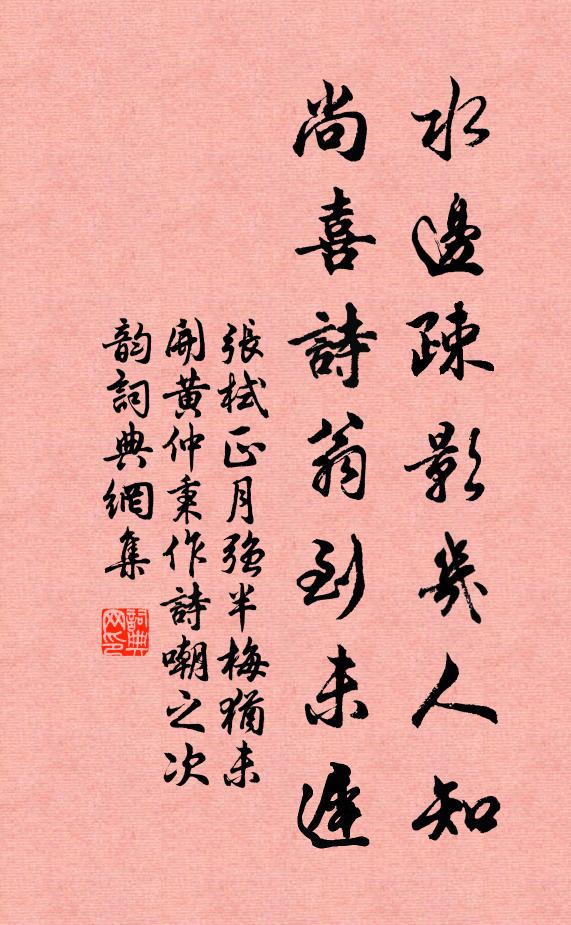 水邊疎影幾人知
尚喜詩翁到未遲
張栻正月強半梅猶未
開黃仲秉作詩嘲之次
韵詞典網集
詞典
网印